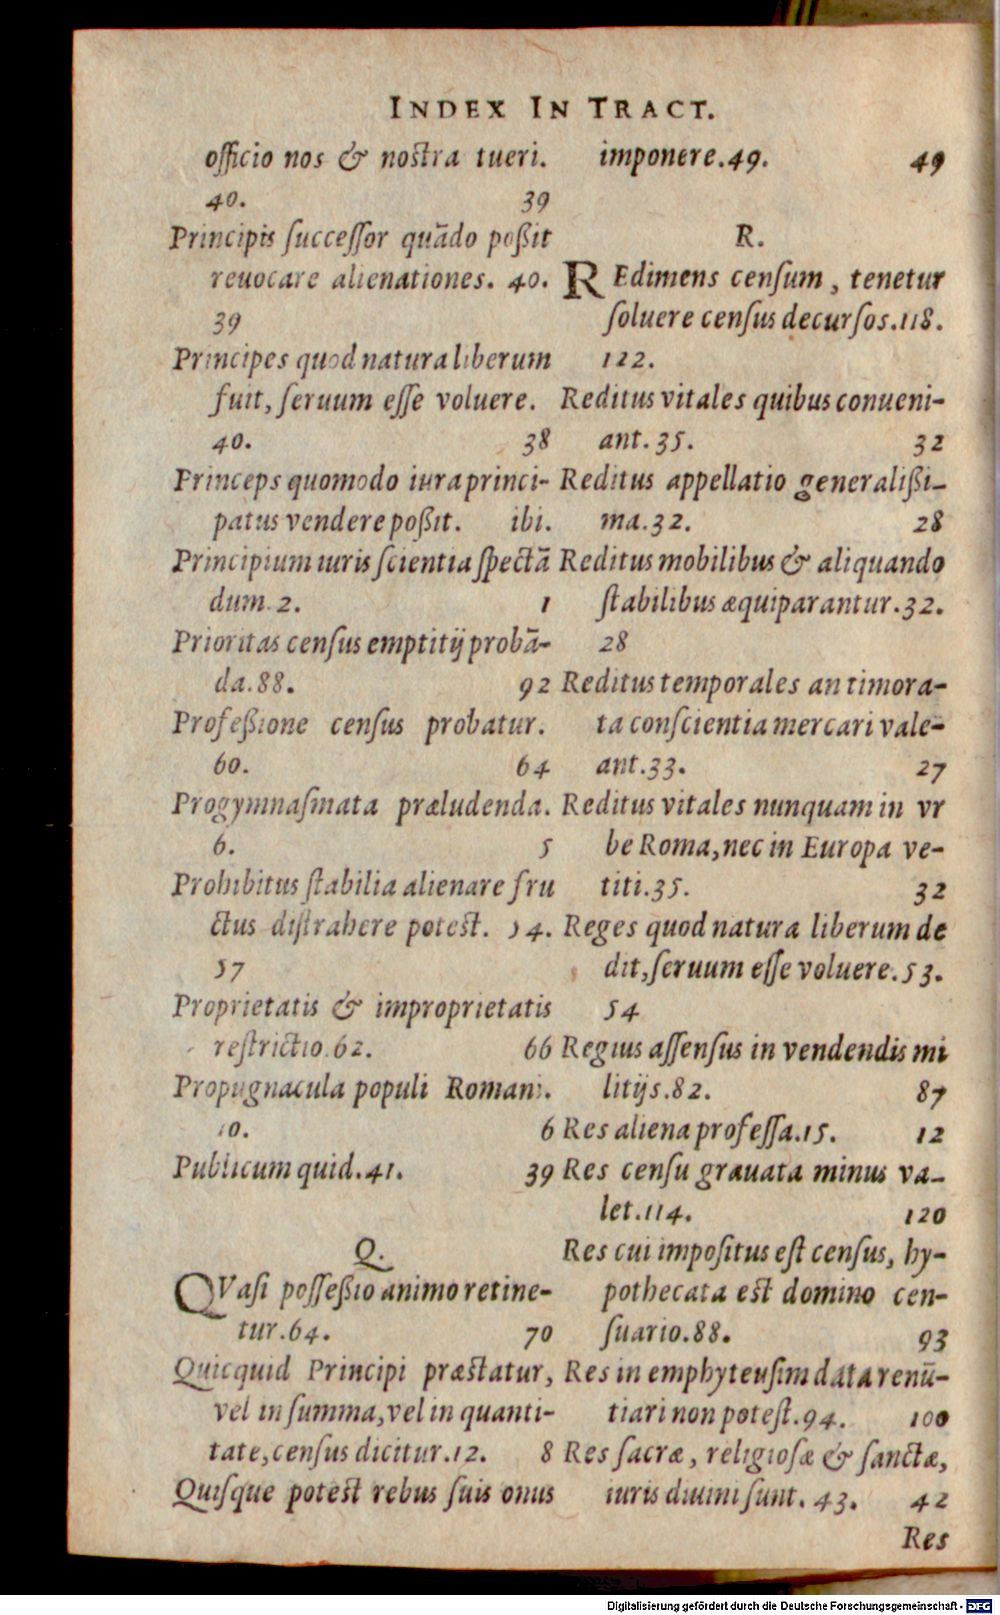 INDEX IN TRACT.
officio nos & nostra tueri.
40. 39
Principis successor quādo poßit
reuocare alienationes. 40.
39
Principes quod natura liberum
fuit, seruum esse voluere.
40. 38
Princeps quomodo iura princi-
patus vendere poßit. ibi.
Principium iuris scientia spectā
dum. 2. 1
Prioritas census emptitij probā-
da. 88. 92
Profeßione census probatur.
60. 64
Progymnasmata præludenda.
6. 5
Prohibitus stabilia alienare fru
ctus distrahere potest. 54.
57
Proprietatis & improprietatis
restrictio. 62. 66
Propugnacula populi Romani.
10. 6
Publicum quid. 41. 39
Q.
QVasi posseßio animo retine-
tur. 64. 70
Quicquid Principi præstatur,
vel in summa, vel in quanti-
tate, census dicitur. 12. 8
Quisque potest rebus suis onus
imponere. 49. 49
R.
REdimens censum, tenetur
soluere census decursos. 118.
122.
Reditus vitales quibus conueni-
ant. 35. 32
Reditus appellatio generalißi-
ma. 32. 28
Reditus mobilibus & aliquando
stabilibus æquiparantur. 32.
28
Reditus temporales an timora-
ta conscientia mercari vale-
ant. 33. 27
Reditus vitales nunquam in vr
be Roma, nec in Europa ve-
titi. 35. 32
Reges quod natura liberum de
dit, seruum esse voluere. 53.
54
Regius assensus in vendendis mi
litijs. 82. 87
Res aliena professa. 15. 12
Res censu grauata minus va-
let. 114. 120
Res cui impositus est census, hy-
pothecata est domino cen-
suario. 88. 93
Res in emphyteusim data renū-
tiari non potest. 94. 100
Res sacræ, religiosæ & sanctæ,
iuris diuini sunt. 43. 42
Res
Digitalisierung gefördert durch die Deutsche Forschungsgemeinschaft - DFG